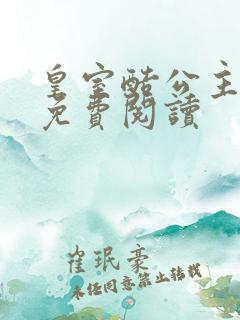 皇室酷公主
免費閱讀
崔珉豪
未经同意禁止转载